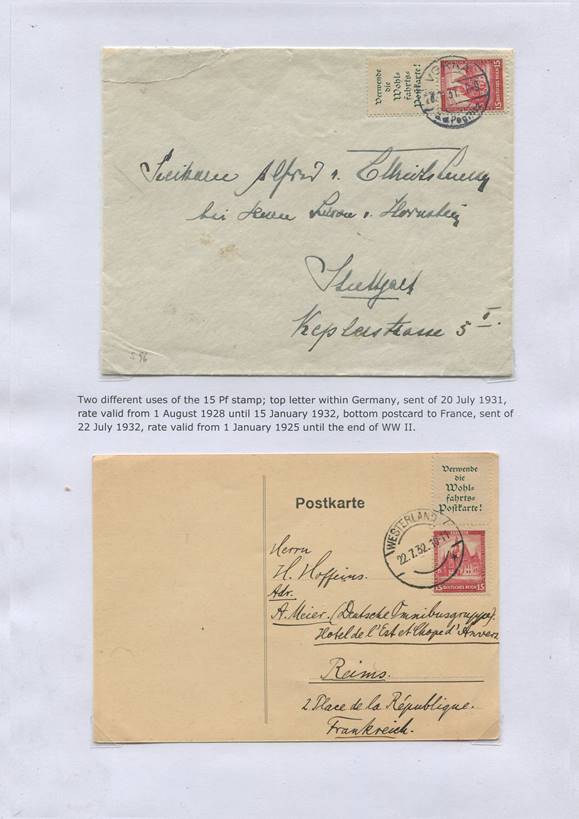 Verwende
die
Wohl-
fahrts-
Postkarte!
15 15
Alfred v.
bei Herrn v. Hornstein
Stuttgart
Keplerstrasse 5 I.
S 96
Two different uses of the 15 Pf stamp; top letter within Germany, sent of 20 July 1931,
rate valid from 1 August 1928 until 15 January 1932, bottom postcard to France, sent of
22 July 1932, rate valid from 1 January 1925 until the end of WW II.
Verwende
die
Wohl-
fahrts-
Postkarte!
Postkarte
WESTERLAND
22.7.32.
15 DEUTSCHES REICH 15
Herrn
H. Hoffeins.
Adr.
A. Meier. (Deutsche Omnibusgruppe).
Hotel de l'Est et Chope d'Anvers
Reims.
2 Place de la République.
Frankreich.